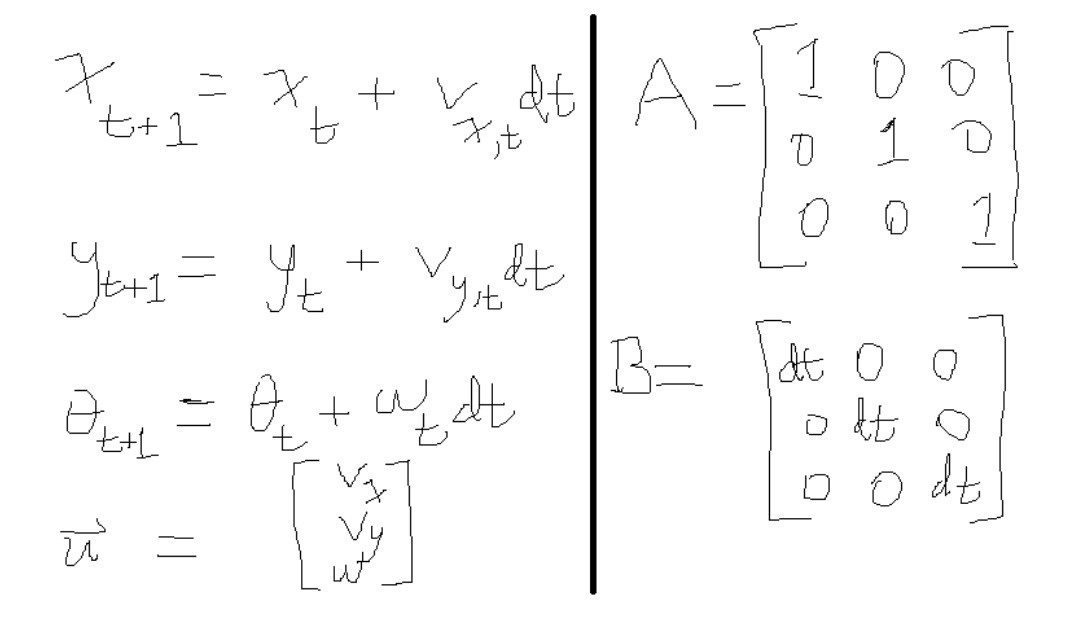 x_{t+1} = x_t + v_{x,t} dt
y_{t+1} = y_t + v_{y,t} dt
θ_{t+1} = θ_t + ω_t dt
u⃗ = [v_x
v_y
w]
A = [1 0 0
0 1 0
0 0 1]
B = [dt 0 0
0 dt 0
0 0 dt]